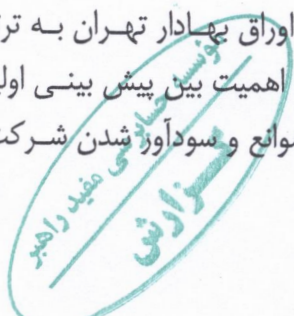 اوراق بهادار تهران به
اهمیت بین پیش بینی
موانع و سودآور شدن
موسسه حسابرسی مفید راهبر
گزارش